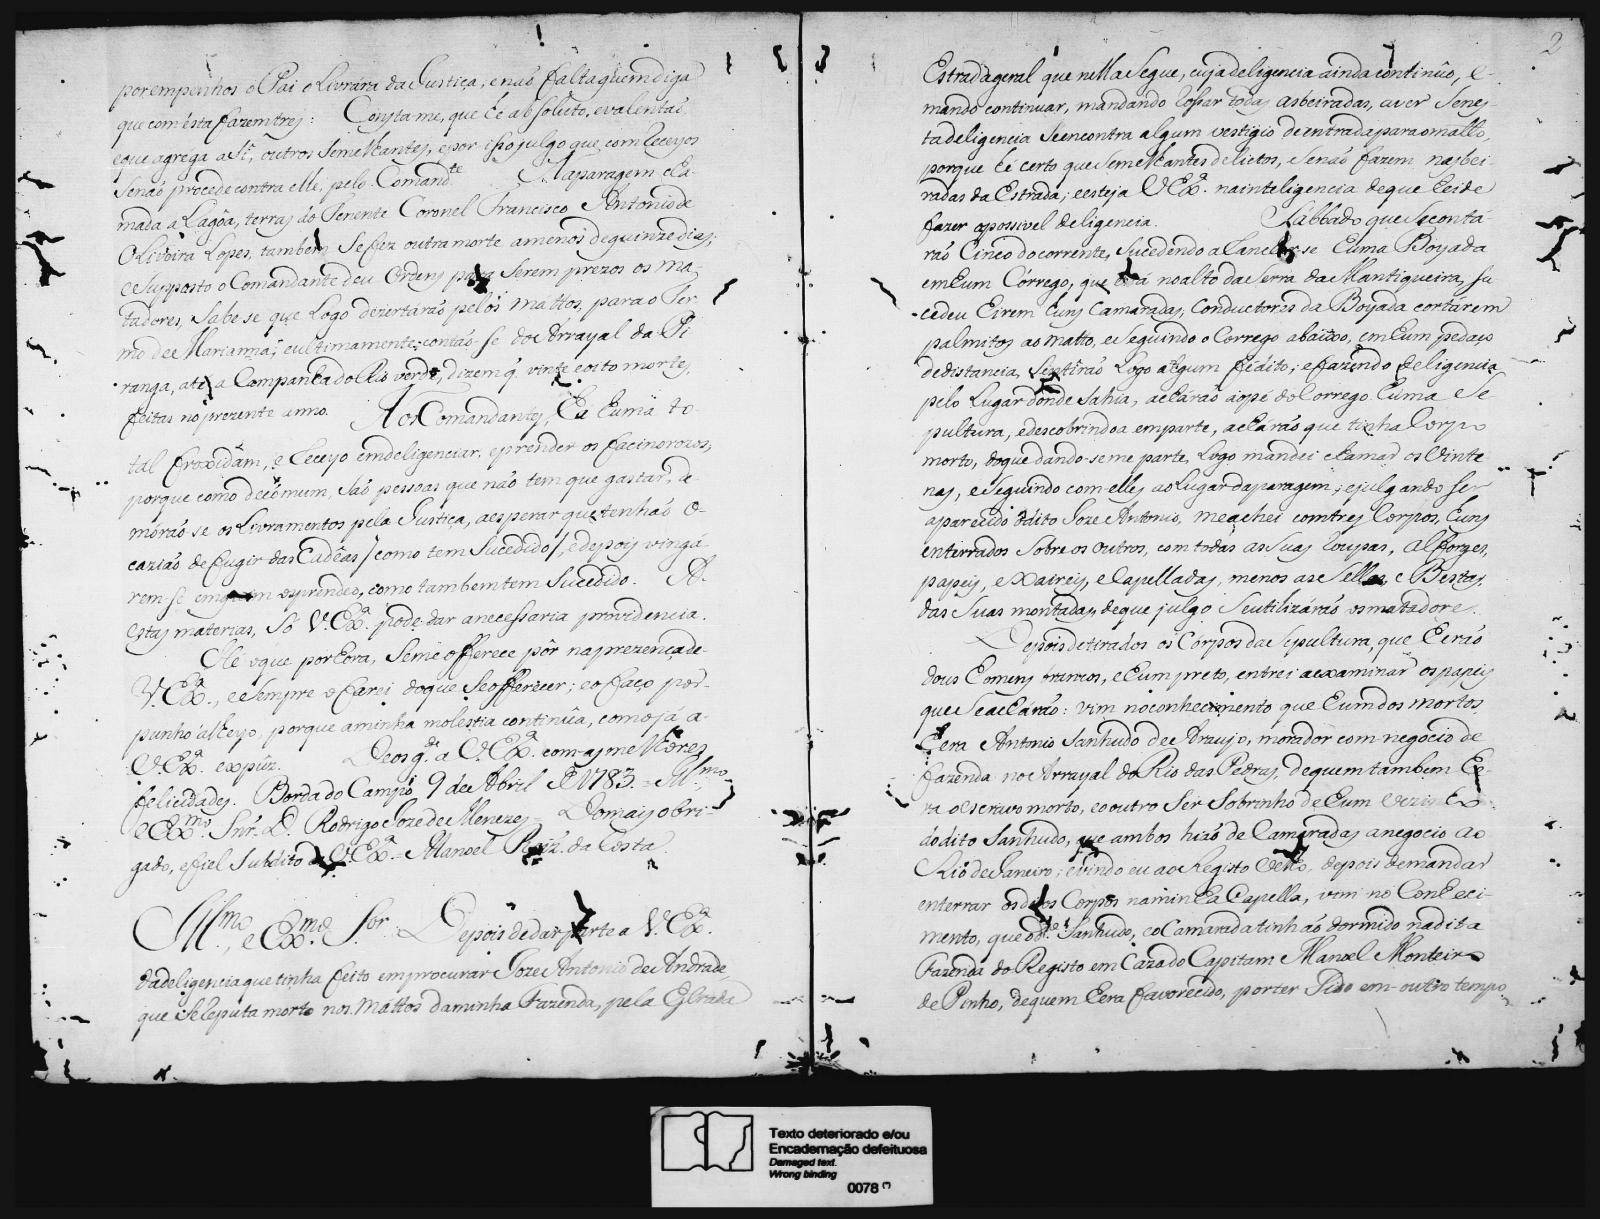 por empenhos o Pai o Livrára da Justiça, e naõ falta quem diga
que com ésta fazem tres: Consta-me, que he absoluto, e valentaõ
e que agrega a Sî, outros Semelhantes, e por isso julgo que com receyos
Senaõ procede contra elle, pelo Comand.te Na paragem cha-
mada a Lagôa, terras do Tenente Coronel Francisco Antonio de
Oliveira Lopes, tambem Se fez outra morte a menos de quinze dias;
e Supposto o Comandante deu Ordens para Serem prezos os ma-
tadores, Sabe se que Logo dezertáraõ pelos Mattos, para o Ter-
mo de Marianna; e ultimamente contaõ-se do Arrayal da Pi-
ranga, até a Campanha do Rio verde, dizem q. vinte e oito mortes,
feitas no prezente anno. Nos Comandantes, ha huma to-
tal froxidam, e receyo em deligenciar, e prender os facinorozos,
porque como de cõmum, Saõ pessoas que não tem que gastar, de
móraõ-se os Livramentos pela Justiça, a esperar que tenhaõ o-
caziaõ de fugir das Cadêas / como tem Sucedido /, e depois vinga-
rem-se em quem os prendeo, como tambem tem Sucedido. A
estas materias, Só V. Ex.ª pode dar a necessaria providencia.
He o que por hora, Se me offerece pôr na prezença de
V. Ex.ª, e Sempre o farei do que Se offerecer; e o faço por
punho alheyo, porque a minha molestia continúa, como já a
V. Ex.ª expûz. Deos g.de a V. Ex.ª com as melhores
felicidades. Borda do Campo 9 de Abril de 1783 = Ill.mo
e Ex.mo Snr. D. Rodrigo Joze de Menezes = Do mais obri-
gado, e fiel Subdito de V. Ex.ª = Manoel Roiz. da Costa
Ill.mo, e Ex.mo Sor. Depois de dar parte a V. Ex.ª
da deligencia que tinha feito em procurar Joze Antonio de Andrade
que Se reputa morto nos Mattos da minha Fazenda, pela Estrada
2
Estrada geral que nella Segue, cuja deligencia ainda continûo, e
mando continuar, mandando rossar todas as beiradas, a ver Se nes-
ta deligencia Se encontra algum vestigio de entrada para o matto,
porque hé certo que Semelhantes delictos, Se naõ fazem nas bei-
radas da Estrada; e esteja V. Ex.ª na inteligencia de que hei de
fazer o possivel deligencia. Sabbado que Se conta-
raõ Cinco do corrente, Sucedendo a rancharse huma Boyada
em hum Córrego, que está no alto da Serra da Mantiqueira, Su-
cedeu hirem huns Camaradas, Conductores da Boyada cortárem
palmitos ao matto, e Seguindo o Corrego abaixo, em hum pedaço
de distancia, Sentiraõ Logo algum fédito; e fazendo deligencia
pelo Lugar donde Sahia, acháraõ ao pé do Corrego huma Se-
pultura, e descobrindo-a em parte, acháraõ que tinha Corpo
morto, do que dando-se-me parte, Logo mandei chamar os Vinte-
nas, e Seguindo com elles ao Lugar da paragem, e julgando Ser
aparecido o dito Joze Antonio, me achei com tres Corpos, huns
enterrados Sobre os outros, com todas as Suas roupas, Alforges,
papeis, e Xaireis, e Capelladas, menos as Sellas, e Bestas
das Suas montadas, de que julgo Se utilizáraõ os matadores.
Depois de tirados os Corpos da Sepultura, que heraõ
dous homens brancos, e hum preto, entrei a examinar os papeis
que Se acháraõ: vim no conhecimento que hum dos mortos
hera Antonio Sanhudo de Araujo, morador com negocio de
fazenda no Arrayal do Rio das Pedras, de quem tambem he-
ra o escravo morto, e o outro Ser Sobrinho de hum
do dito Sanhudo, que ambos hiaõ de Camaradas a negocio ao
Rio de Janeiro; e vindo eu ao Registo velho, depois de mandar
enterrar os ditos Corpos na minha Capella, vim no Conheci-
mento, que o d.º Sanhudo, e o Camarada tinhaõ dormido na dita
Fazenda do Registo em Caza do Capitam Manoel Monteiro
de Pinho, de quem hera favorecido, por ter Sido em outro tempo
Texto deteriorado e/ou
Encadernação defeituosa
Damaged text.
Wrong binding
0078 (*)